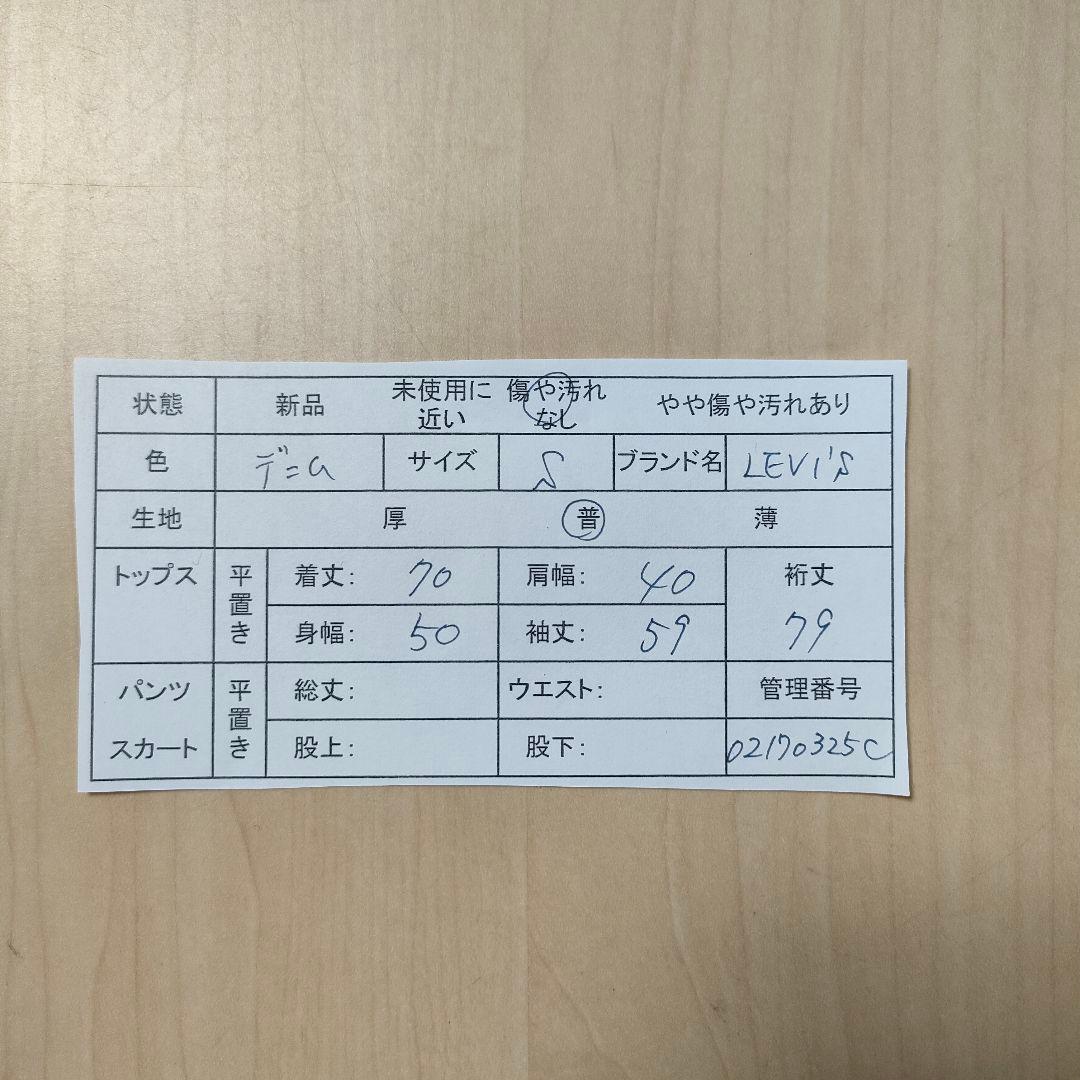 状態 新品 未使用に近い 傷や汚れなし やや傷や汚れあり
色 デニム サイズ S ブランド名 LEVI'S
生地 厚 普 薄
トップス 平置き 着丈: 70 肩幅: 40 裄丈
身幅: 50 袖丈: 59 79
パンツ 平置き 総丈: ウエスト: 管理番号
スカート 股上: 股下: 02170325C